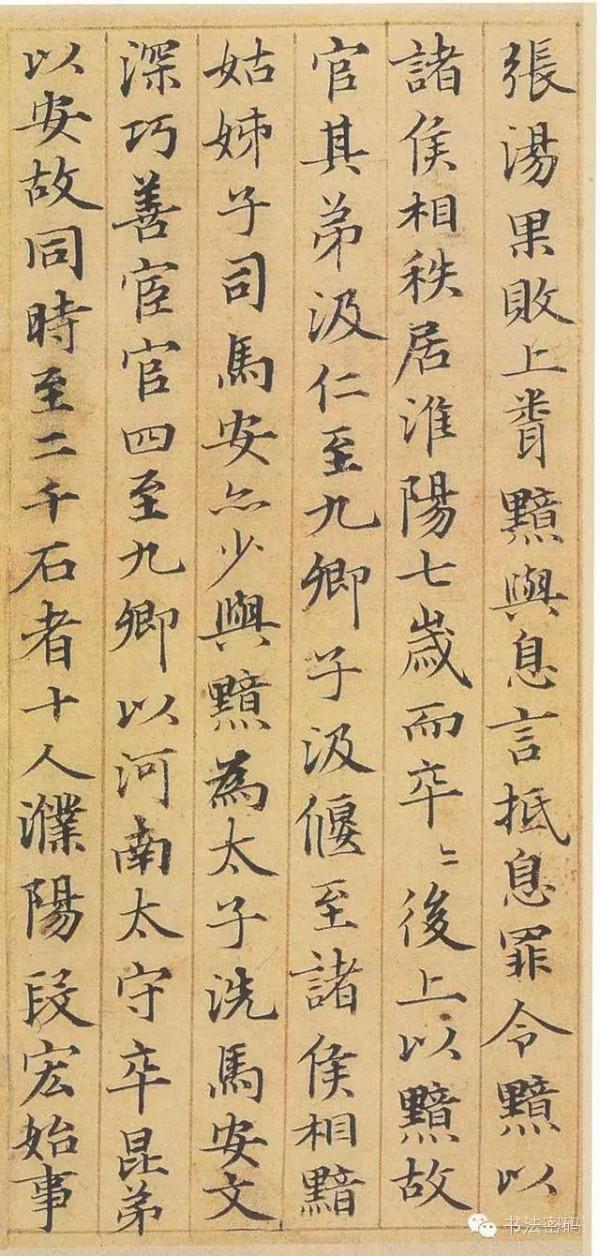 張湯果敗上聞黯與息言抵息罪令黯以
諸侯相秩居淮陽七歲而卒〻後上以黯故
官其弟汲仁至九卿子汲偃至諸侯相黯
姑姊子司馬安亦少與黯為太子洗馬安文
深巧善宦官四至九卿以河南太守卒昆弟
以安故同時至二千石者十人濮陽段宏始事
书法密码